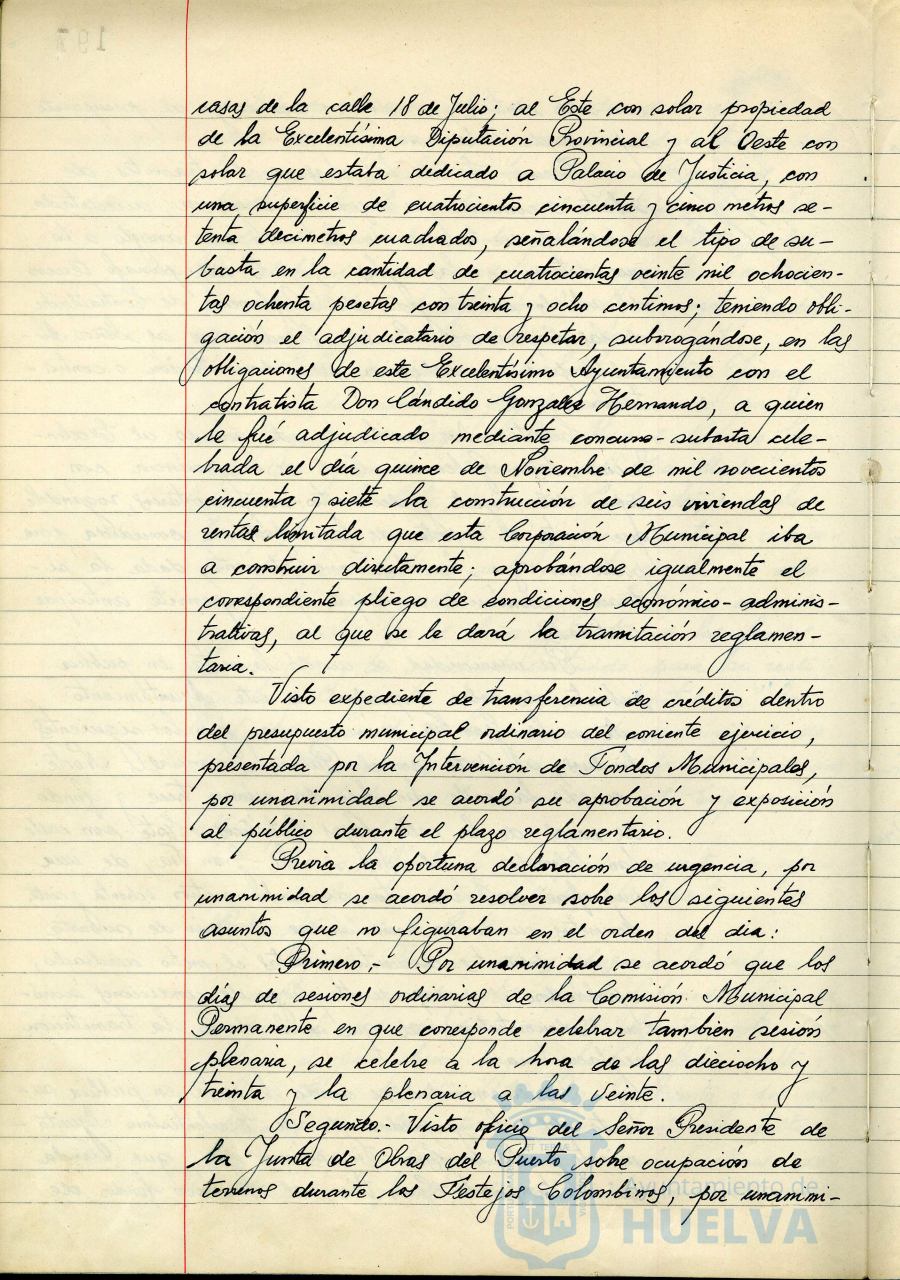 casas de la calle 18 de Julio; al Este con solar propiedad
de la Excelentísima Diputación Provincial y al Oeste con
solar que estaba dedicado a Palacio de Justicia, con
una superficie de cuatrocientos cincuenta y cinco metros se-
tenta decimetros cuadrados, señalándose el tipo de su-
basta en la cantidad de cuatrocientas veinte mil ochocien-
tas ochenta pesetas con treinta y ocho centimos; teniendo obli-
gación el adjudicatario de respetar, subrogándose, en las
obligaciones de este Excelentísimo Ayuntamiento con el
contratista Don Cándido Gonzalez Hernando, a quien
le fué adjudicado mediante concurso-subasta cele-
brada el día quince de Noviembre de mil novecientos
cincuenta y siete la construcción de seis viviendas de
rentas limitada que esta Corporación Municipal iba
a construir directamente; aprobándose igualmente el
correspondiente pliego de condiciones económico-adminis-
trativas, al que se le dará la tramitación reglamen-
taria.
Visto expediente de transferencia de créditos dentro
del presupuesto municipal ordinario del corriente ejercicio,
presentada por la Intervención de Fondos Municipales,
por unanimidad se acordó su aprobación y exposición
al público durante el plazo reglamentario.
Previa la oportuna declaración de urgencia, por
unanimidad se acordó resolver sobre los siguientes
asuntos que no figuraban en el orden del dia:
Primero.- Por unanimidad se acordó que los
días de sesiones ordinarias de la Comisión Municipal
Permanente en que corresponde celebrar tambien sesión
plenaria, se celebre a la hora de las dieciocho y
treinta y la plenaria a las veinte.
Segundo.- Visto oficio del Señor Presidente de
la Junta de Obras del Puerto sobre ocupación de
terrenos durante los Festejos Colombinos, por unanimi-
Ayuntamiento de
HUELVA